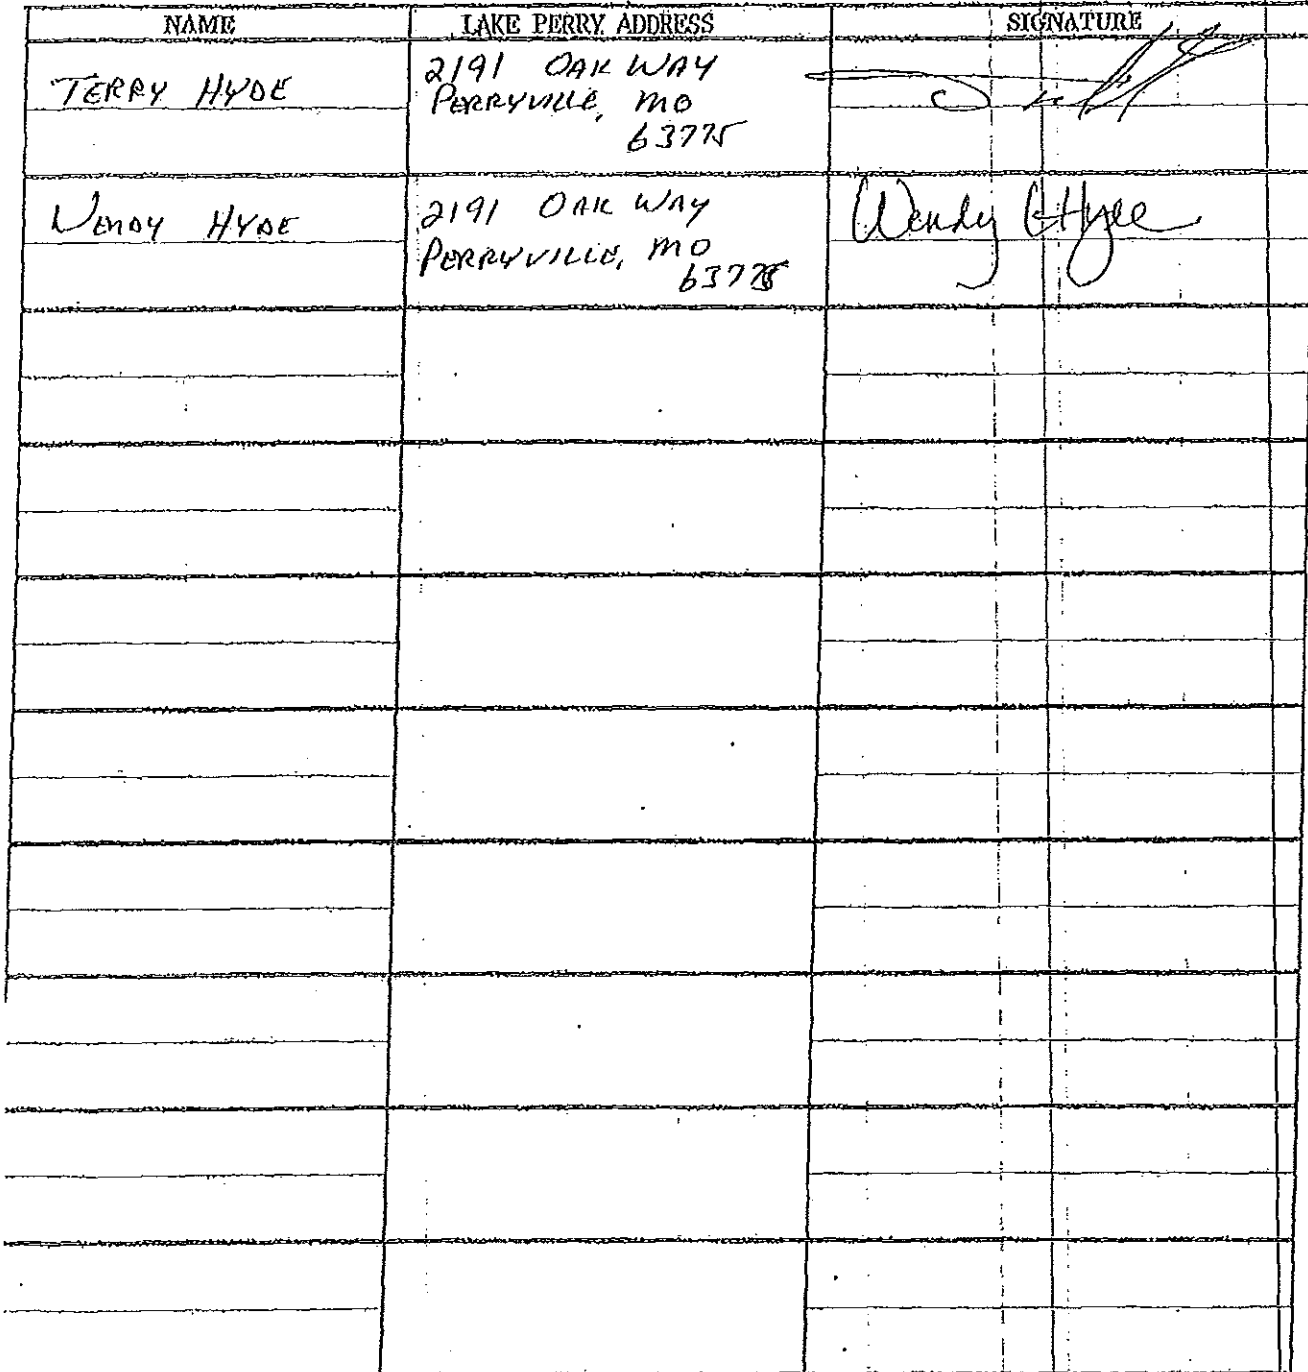 NAME LAKE PERRY ADDRESS SIGNATURE
TERRY HYDE
2191 OAK WAY
PERRYVILLE, MO
63775
WENDY HYDE
2191 OAK WAY
PERRYVILLE, MO
63775
Wendy Hyde